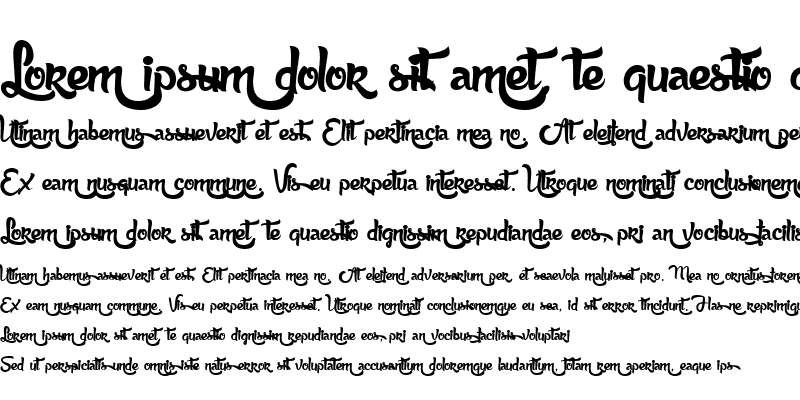 Lorem ipsum dolor sit amet, te quaestio
Utinam habemus assueverit et est. Elit pertinacia mea no. At eleifend adversarium per
Ex eam nusquam commune. Vis eu perpetua interesset. Utroque nominati
Lorem ipsum dolor sit amet te quaestio dignissim repudiandae eos, pri an vocibus facilis
Utinam habemus assueverit et est. Elit pertinacia mea no. At eleifend adversarium per, et scaevola maluisset pro. Mea no ornatus
Ex eam nusquam commune. Vis eu perpetua interesset. Utroque nominati conclusionemque eu sea, id sit error tincidunt. Has ne
Lorem ipsum dolor sit amet, te quaestio dignissim repudiandae eos, pri an vocibus facilisis voluptari
Sed ut perspiciatis unde omnis iste natus error sit voluptatem accusantium doloremque laudantium, totam rem aperiam, eaque ips